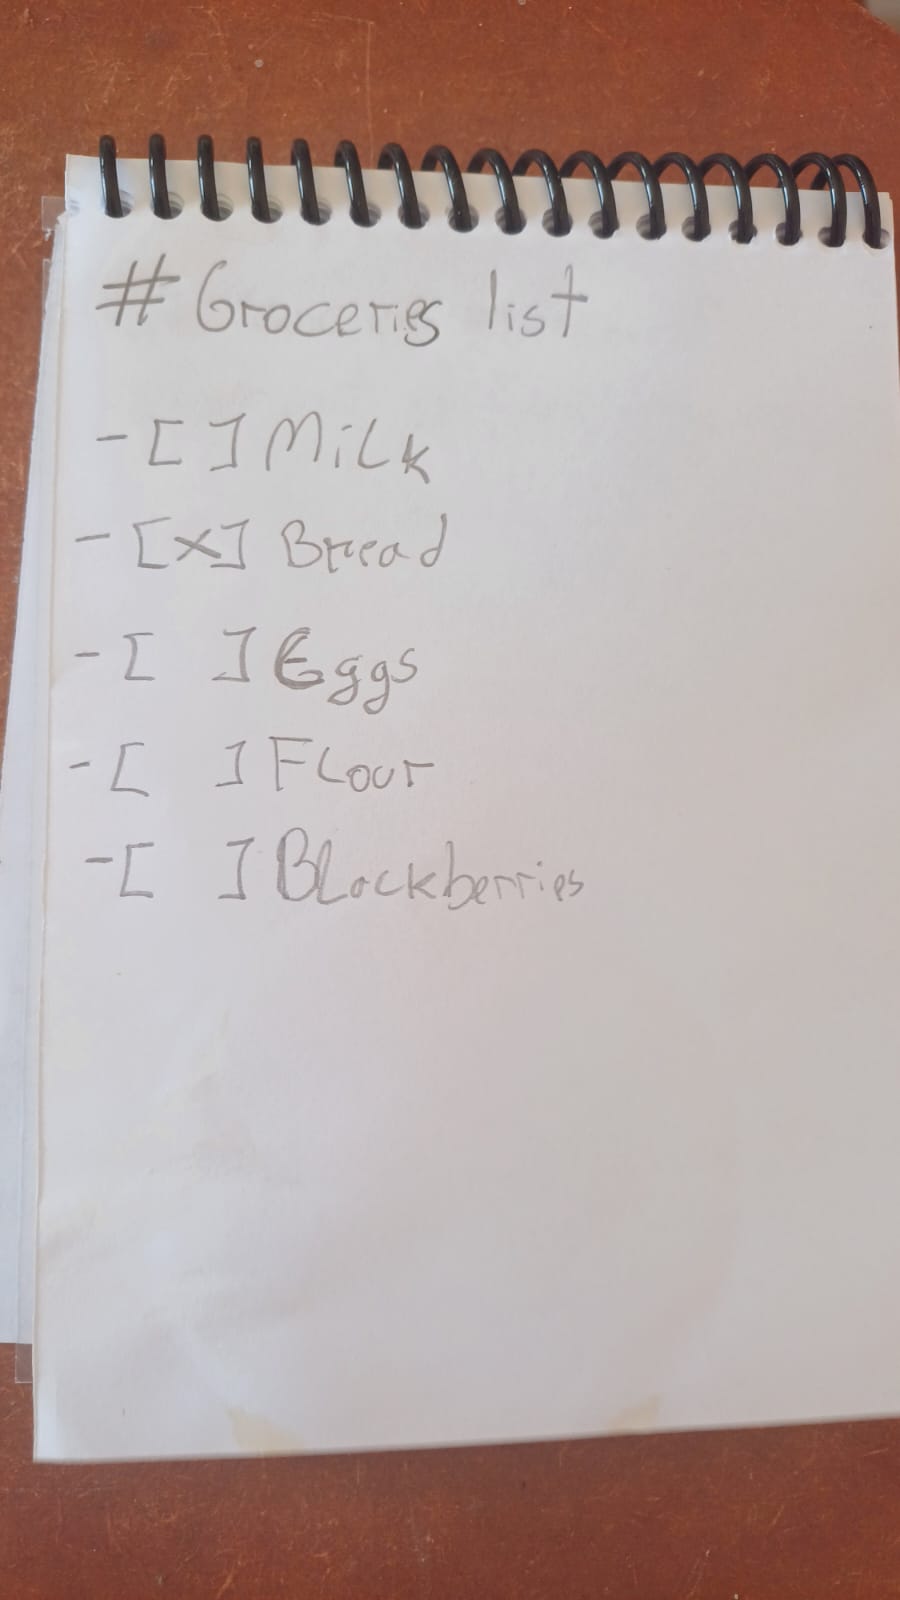 # Groceries list
- [ ] Milk
- [x] Bread
- [ ] Eggs
- [ ] Flour
- [ ] Blackberries